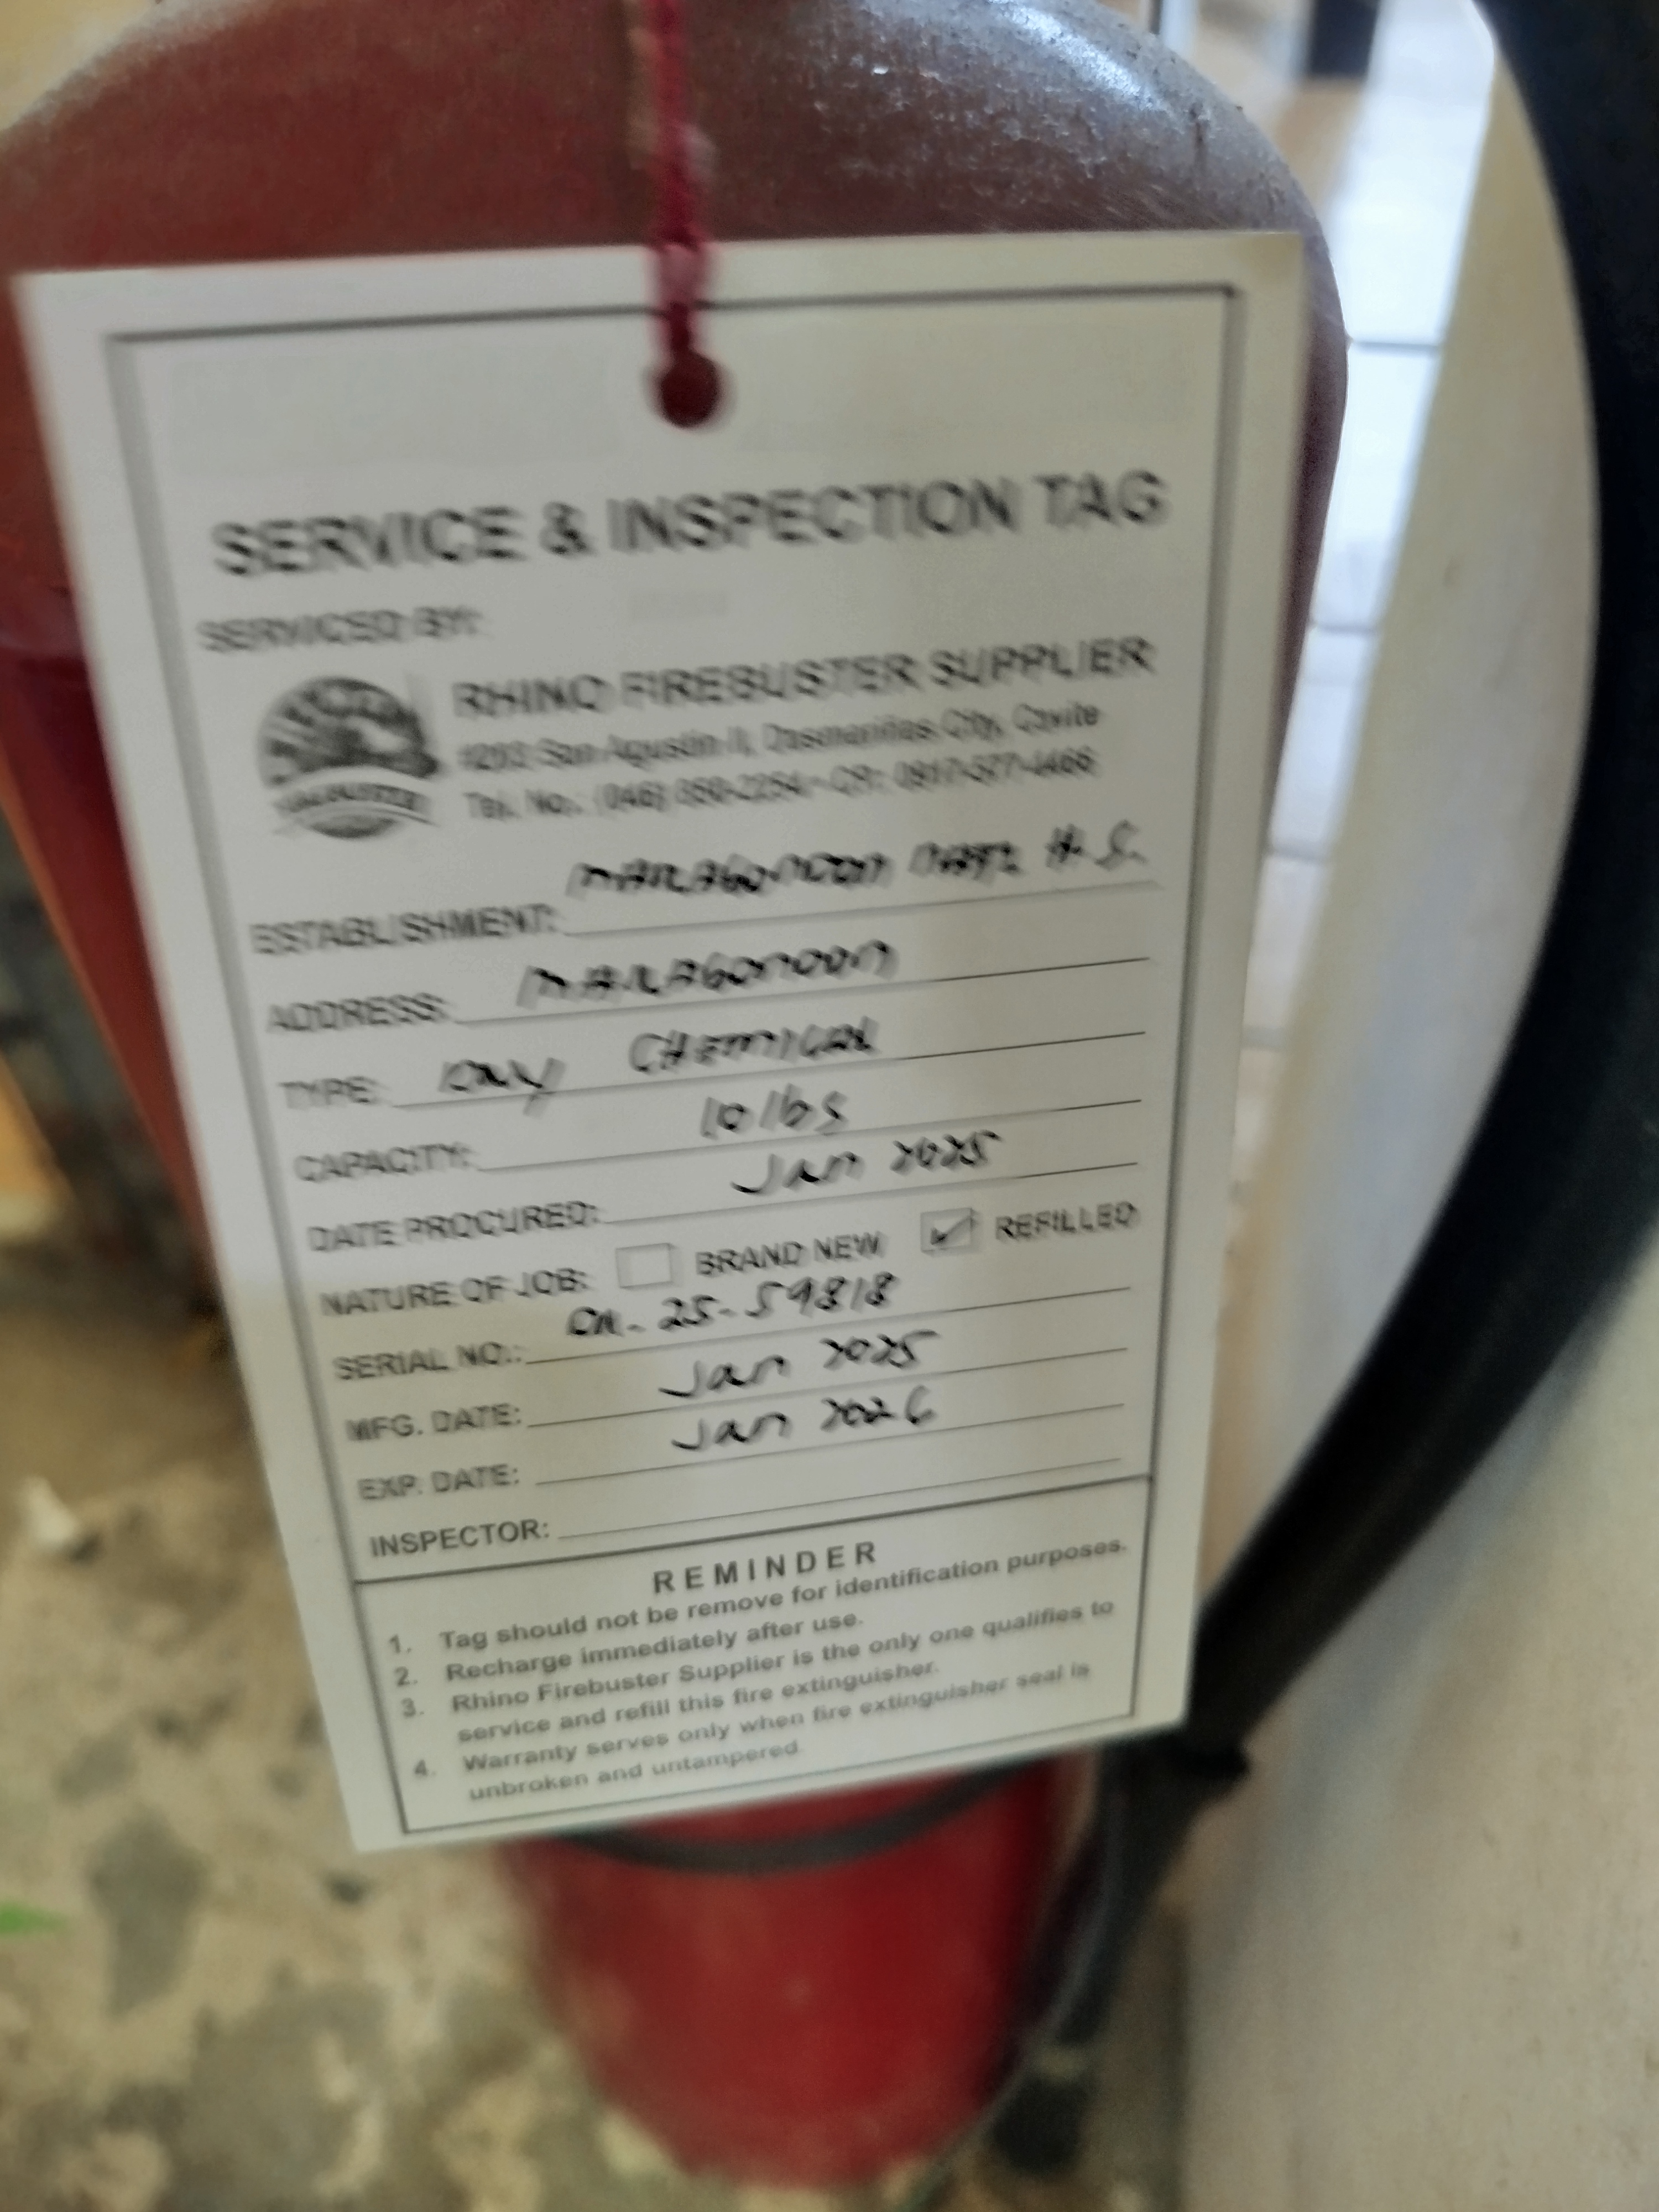 SERVICE & INSPECTION TAG
SERVICED BY:
RHINO FIREBUSTER SUPPLIER
San Agustin II, Dasmariñas City, Cavite
Tel. No.: (046)
ESTABLISHMENT: H.S.
ADDRESS:
TYPE: DRY CHEMICAL
CAPACITY: 10 lbs
DATE PROCURED: Jan 2025
NATURE OF JOB: BRAND NEW REFILLED
SERIAL NO.: CR-25-59818
MFG. DATE: Jan 2025
EXP. DATE: Jan 2026
INSPECTOR:
REMINDER
1. Tag should not be remove for identification purposes.
2. Recharge immediately after use.
3. Rhino Firebuster Supplier is the only one qualifies to
service and refill this fire extinguisher.
4. Warranty serves only when fire extinguisher seal is
unbroken and untampered.